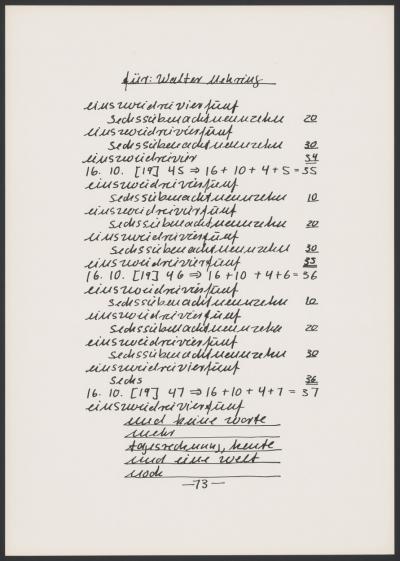 für: Walter Mehring
einszweidreivierfünf
sechssiebenachtneunzehn 20
einszweidreivierfünf
sechssiebenachtneunzehn 30
einszweidreivier 34
16. 10. [19] 45 ⇒ 16 + 10 + 4 + 5 = 35
einszweidreivierfünf
sechssiebenachtneunzehn 10
einszweidreivierfünf
sechssiebenachtneunzehn 20
einszweidreivierfünf
sechssiebenachtneunzehn 30
einszweidreivierfünf 35
16. 10. [19] 46 ⇒ 16 + 10 + 4 + 6 = 36
einszweidreivierfünf
sechssiebenachtneunzehn 10
einszweidreivierfünf
sechssiebenachtneunzehn 20
einszweidreivierfünf
sechssiebenachtneunzehn 30
einszweidreivierfünf
sechs 36
16. 10. [19] 47 ⇒ 16 + 10 + 4 + 7 = 37
einszweidreivierfünf
und keine worte
mehr
tagesrechnung, heute
und eine welt
noch
—73—